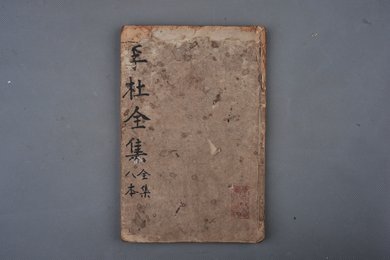 杜全集
全集
八本